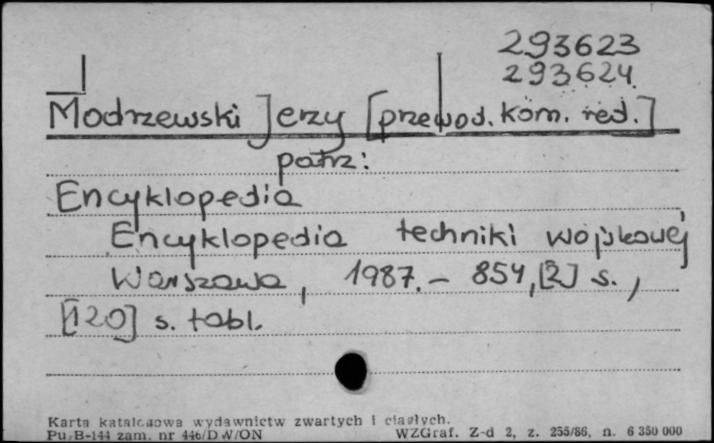 293623
293624
Modrzewski Jerzy [przewod. kom. red.]
patrz:
Encyklopedia
Encyklopedia techniki wojskowej
Warszawa, 1987. – 854, [2] s.,
[120] s. tabl.
Karta katalogowa wydawnictw zwartych i ciągłych.
Pu-B-144 zam. nr 446/DW/ON WZGraf. Z-d 2, z. 255/86, n. 6 350 000